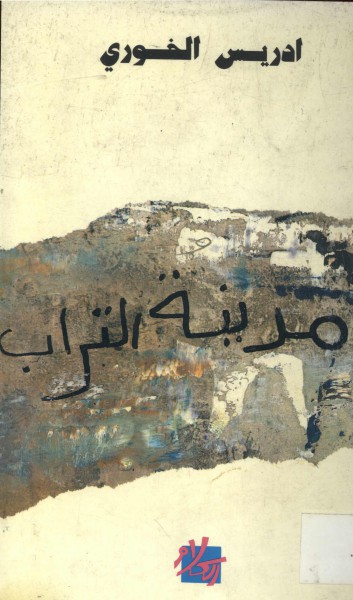 ادريس الخوري
مدينة التراب
الكلام